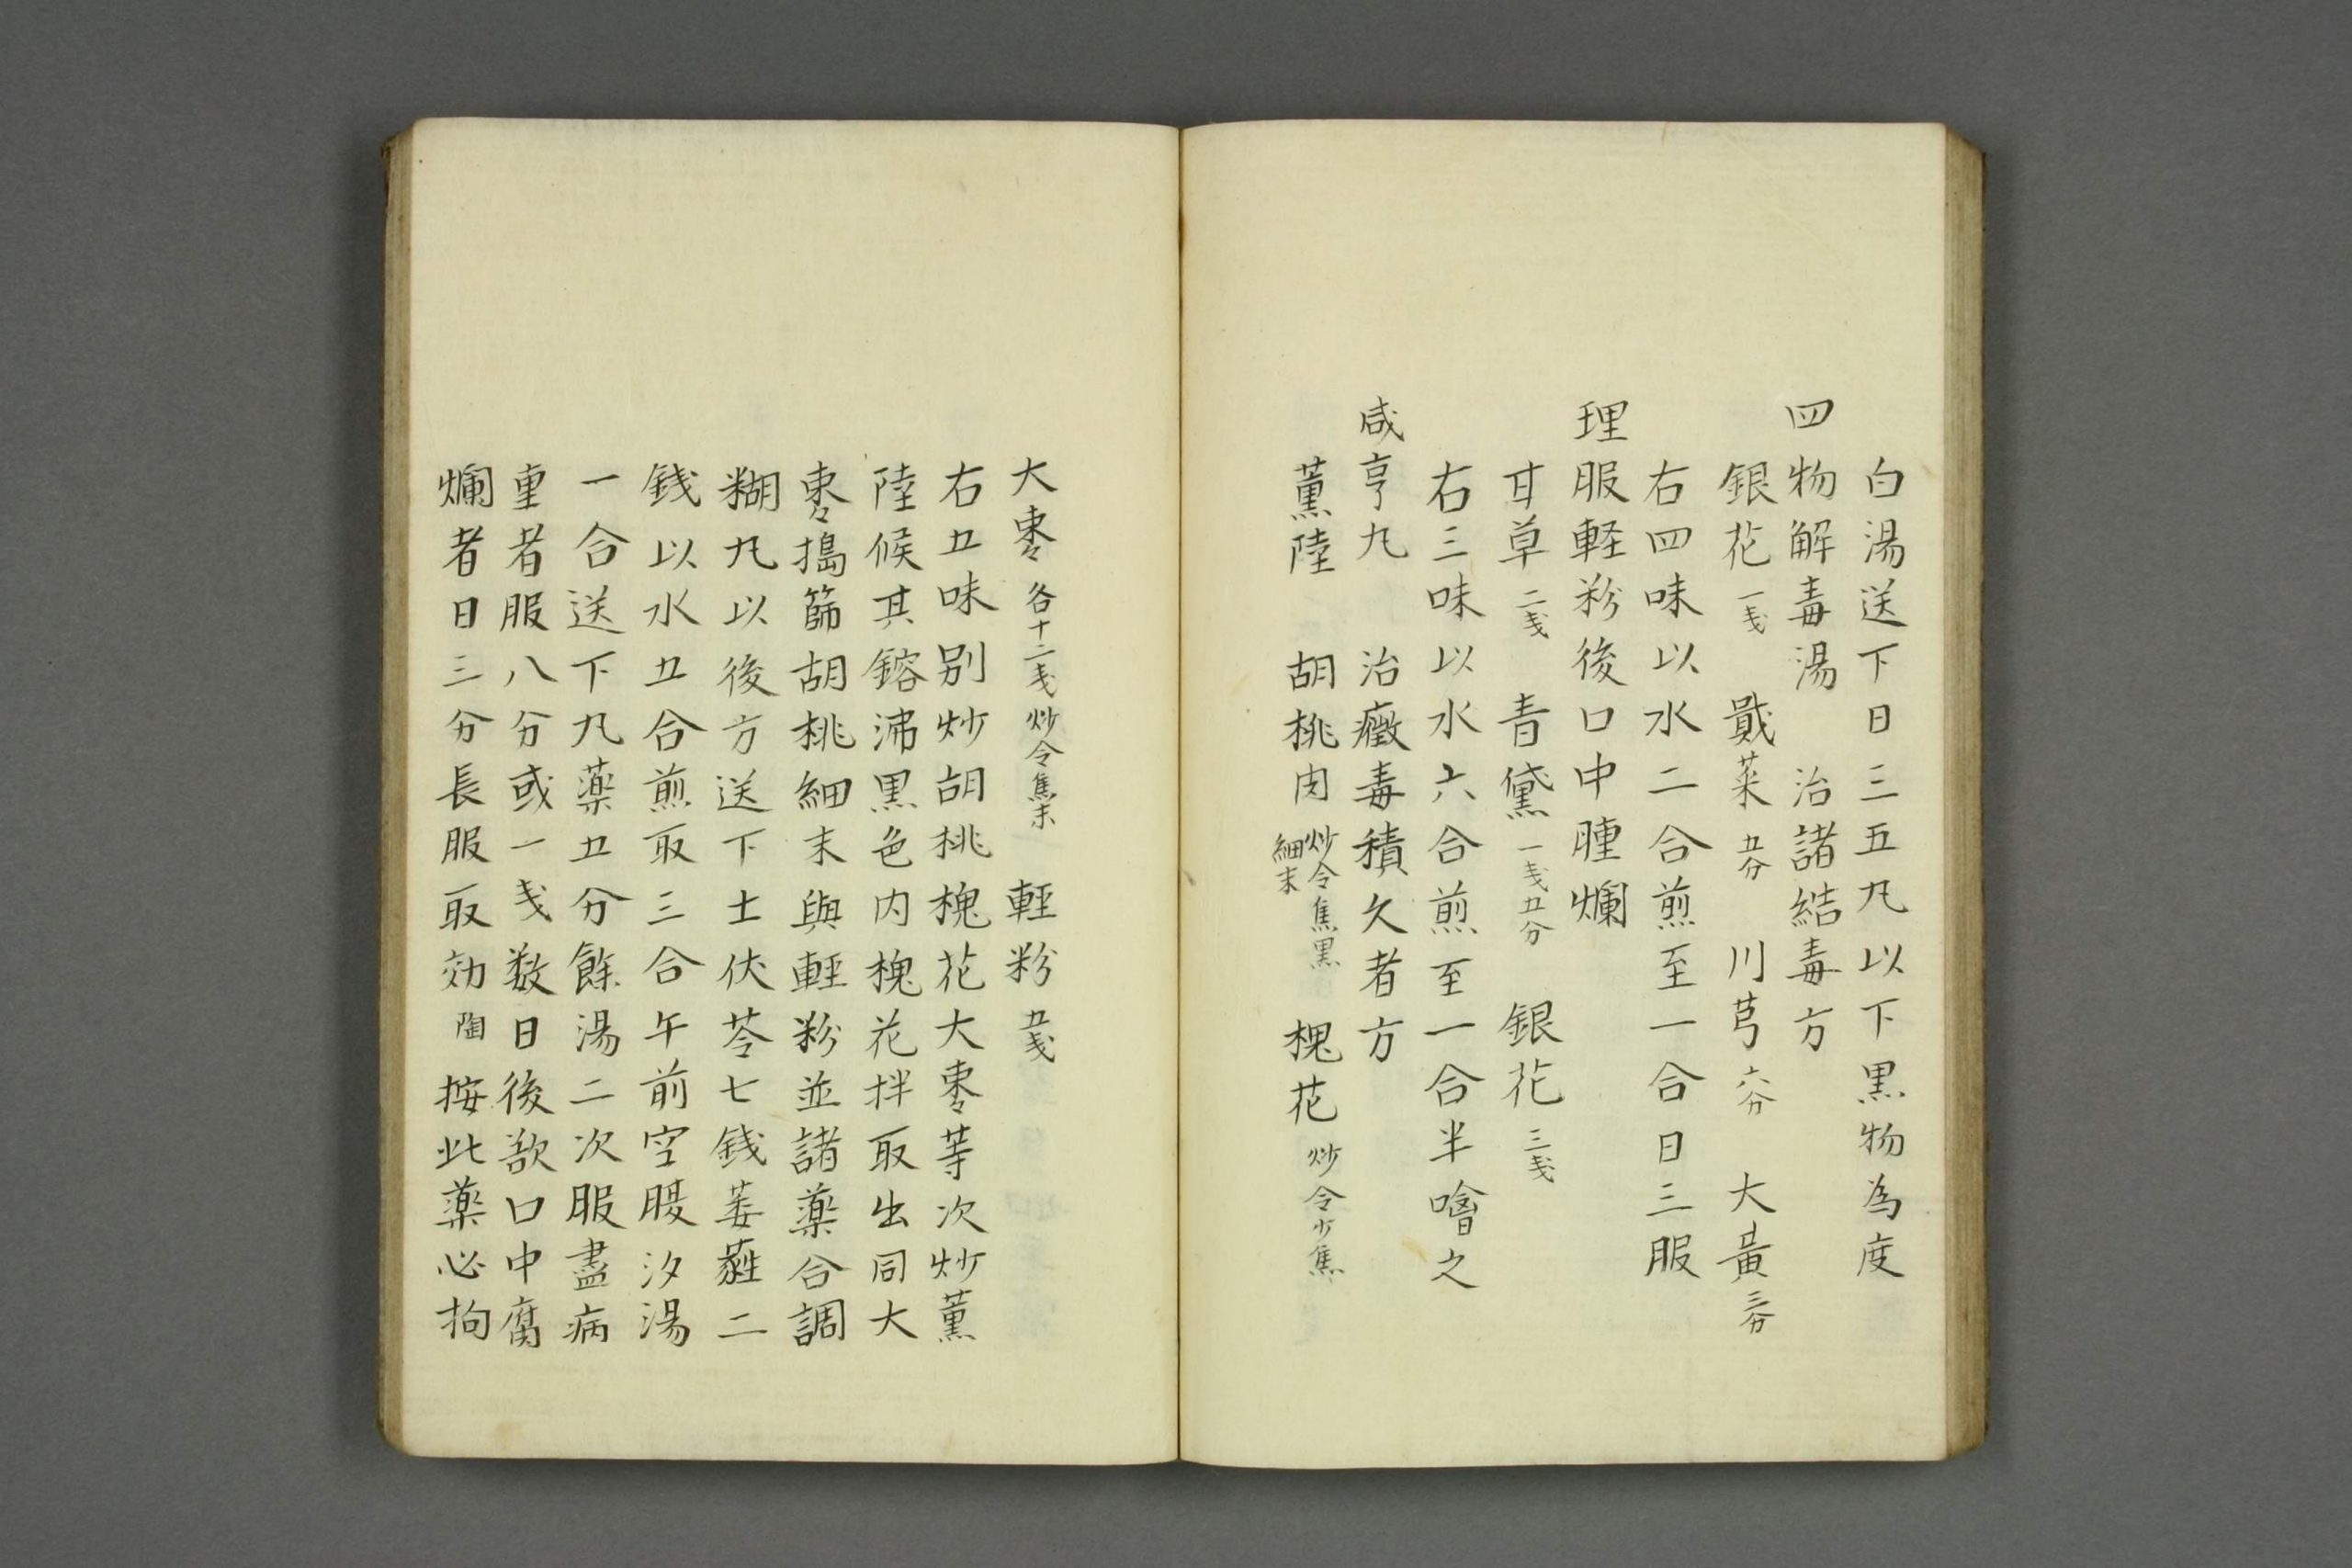 白湯送下日三五丸以下黒物為度
四物解毒湯　治諸結毒方
銀花一戔　蕺菜五分　川芎六分　大黄三分
右四味以水二合煎至一合日三服
理服軽粉後口中腫爛
甘草二戔　青黛一戔五分　銀花三戔
右三味以水六合煎至一合半噙之
咸亨丸　治癥毒積久者方
薫陸　胡桃肉炒令焦黒細末　槐花炒令少焦
大棗各十二戔炒令焦末　輕粉五戔
右五味別炒胡桃槐花大棗等次炒薫
陸候其鎔沸黒色内槐花拌取出同大
棗搗篩胡桃細末與輕粉並諸薬合調
糊丸以後方送下土伏苓七錢萎蕤二
錢以水五合煎取三合午前空腹汐湯
一合送下丸薬五分餘湯二次服盡病
重者服八分或一戔数日後欲口中腐
爛者日三分長服取効 陶 按此薬必拘